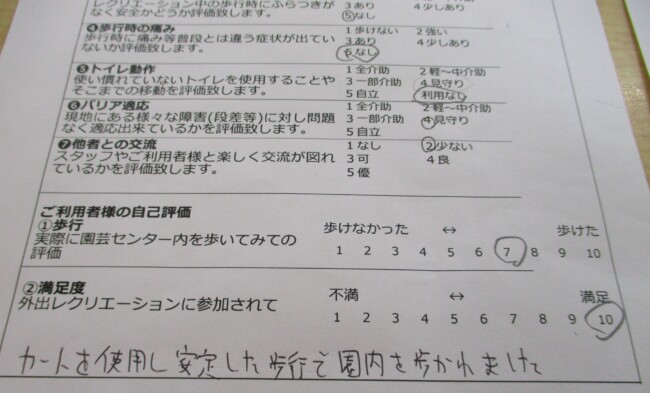 レクリエーション中の歩行時にふらつきが 3あり 4少しあり
なく安全かどうか評価致します。 5なし
④歩行時の痛み 1歩けない 2強い
歩行時に痛み等普段とは違う症状が出てい 3あり 4少しあり
ないか評価致します。 なし
⑤トイレ動作 1全介助 2軽～中介助
使い慣れていないトイレを使用することや 3一部介助 4見守り
そこまでの移動を評価致します。 5自立 利用なし
⑥バリア適応 1全介助 2軽～中介助
現地にある様々な障害(段差等)に対し問題 3一部介助 4見守り
なく適応出来ているかを評価致します。 5自立
⑦他者との交流 1なし 2少ない
スタッフやご利用者様と楽しく交流が図れ 3可 4良
ているかを評価致します。 5優
ご利用者様の自己評価
①歩行 歩けなかった ↔ 歩けた
実際に園芸センター内を歩いてみての
評価 1 2 3 4 5 6 7 8 9 10
②満足度 不満 ↔ 満足
外出レクリエーションに参加されて
1 2 3 4 5 6 7 8 9 10
カートを使用し安定した歩行で園内を歩かれました